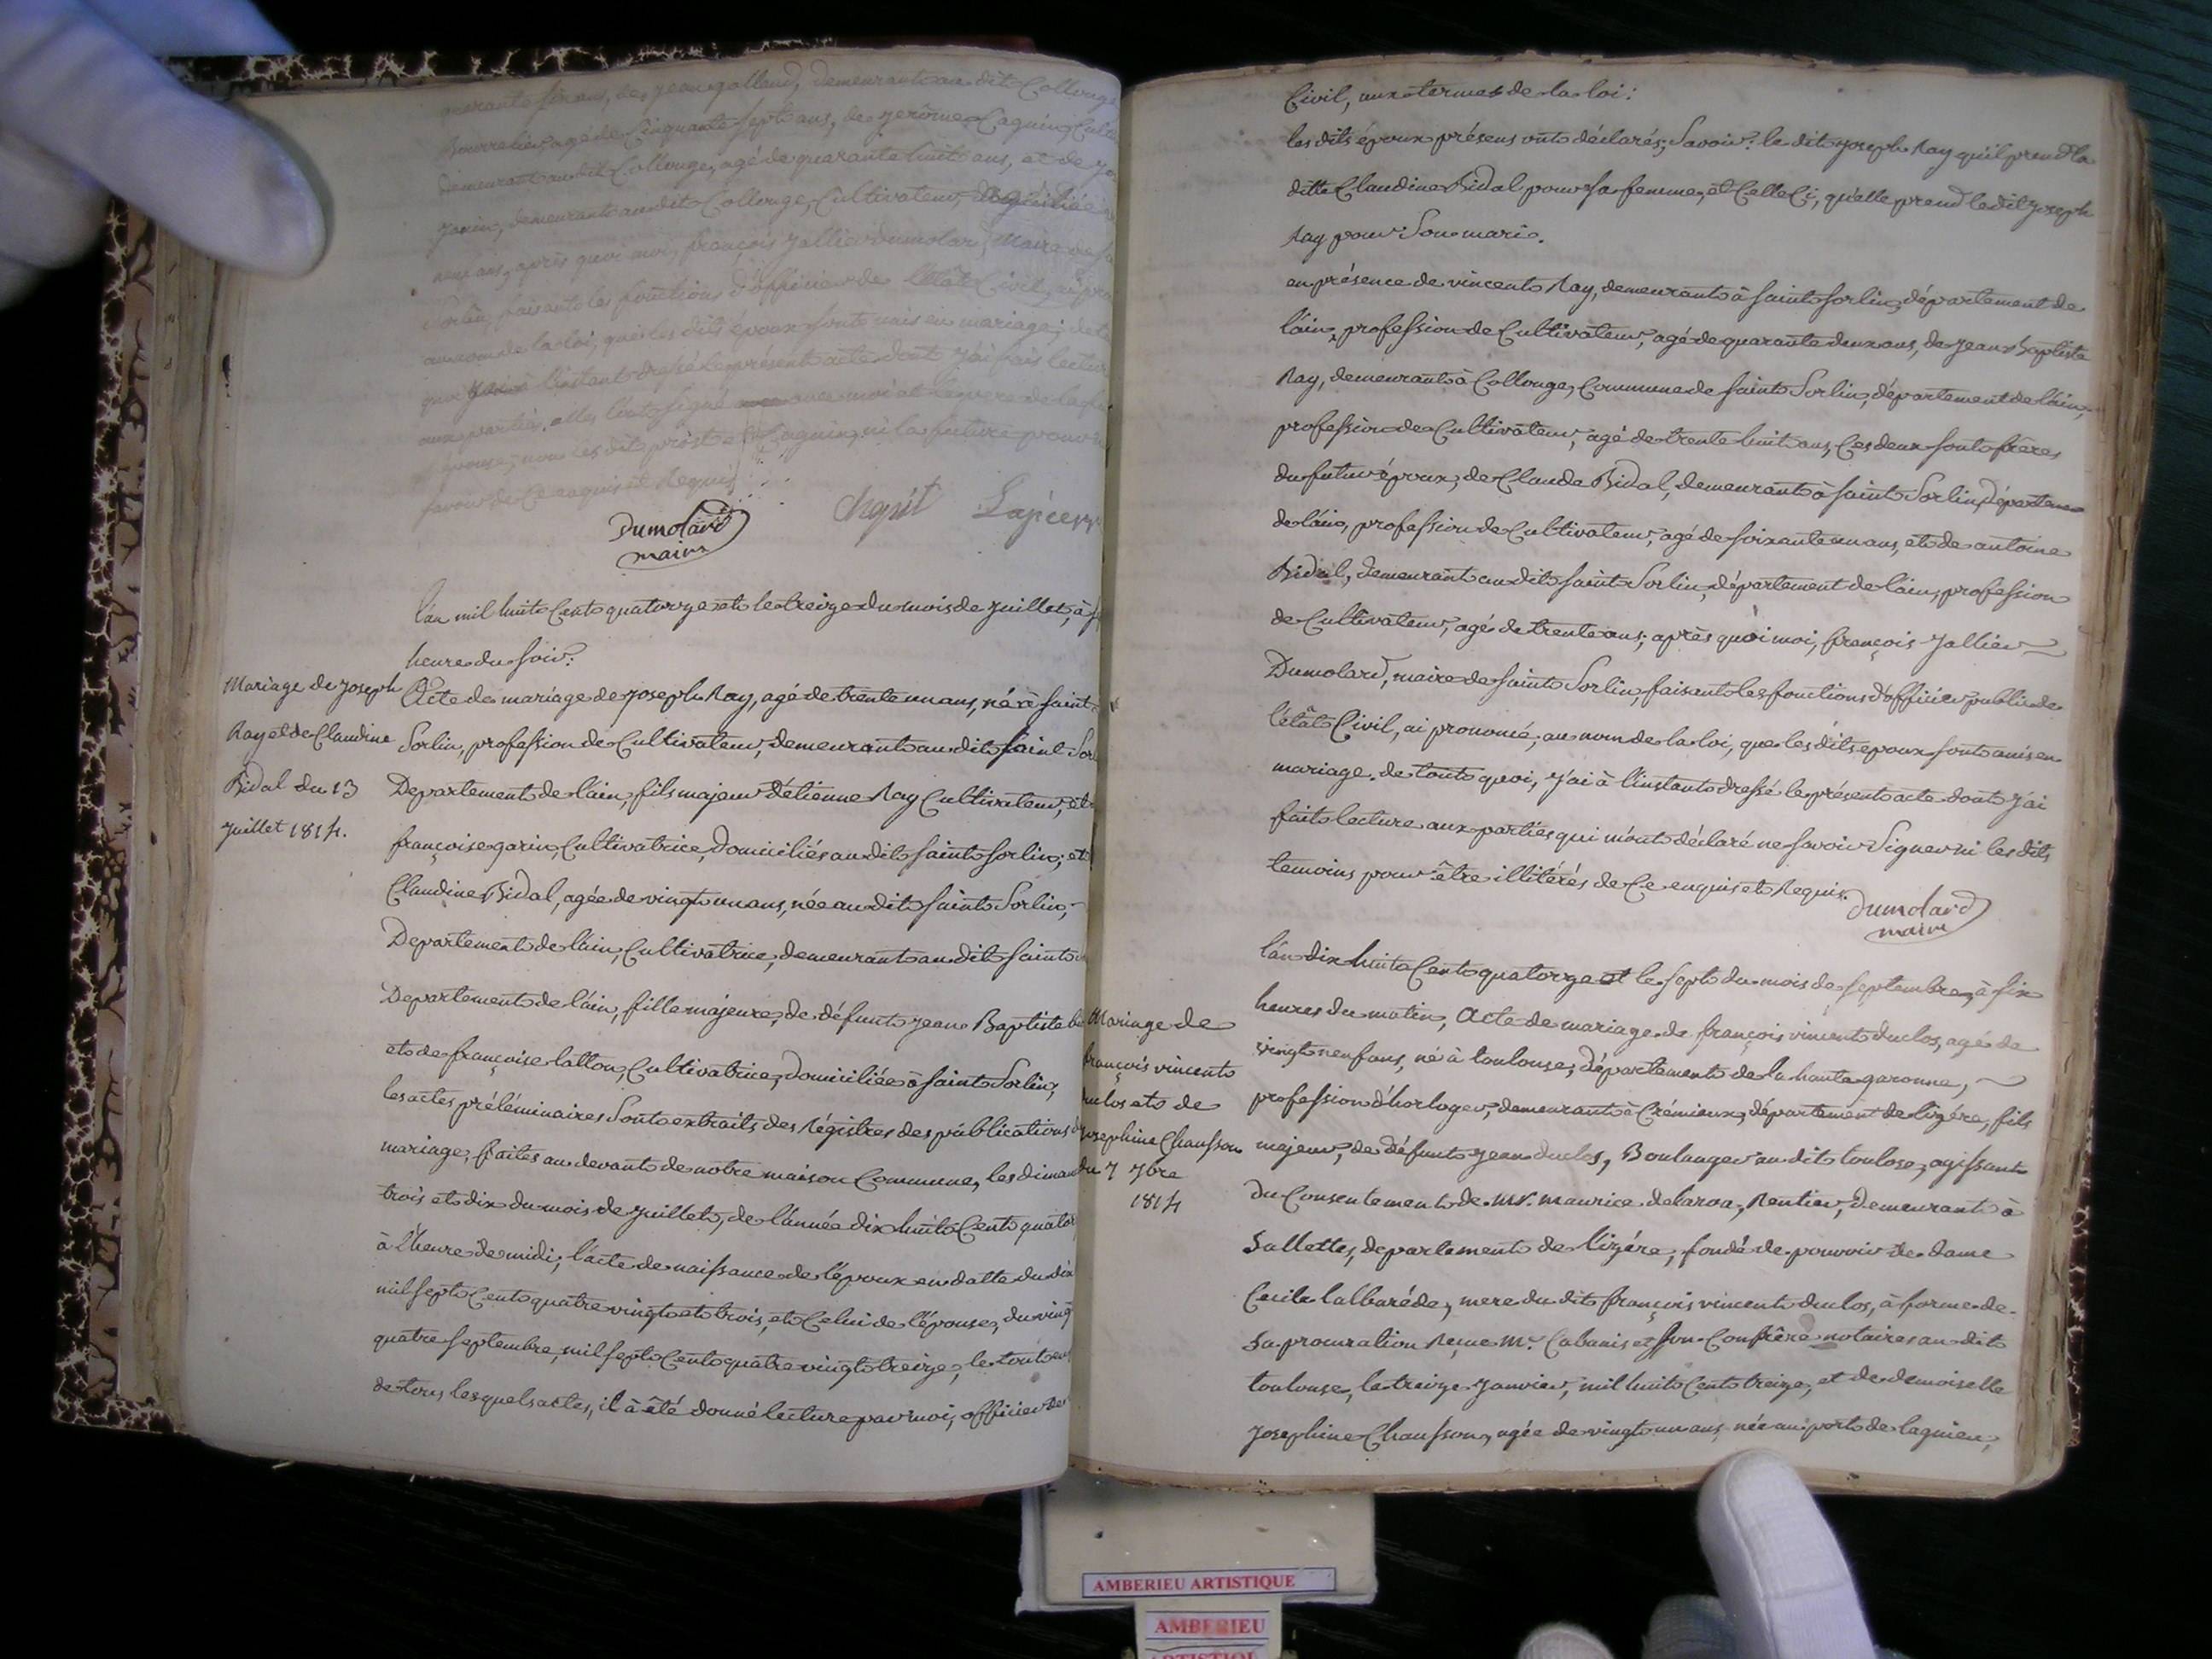 quarante six ans, de jean galland, demeurant au dit Collonge
Bourrelier agé de Cinquante sept ans, de jerôme Cagnin, Culti
demeurant au dit Collonge, agé de quarante huit ans, et de
janin, demeurant au dit Collonge, Cultivateur,
ans, après quoi moi, françois jallier dumolard, Maire de
Sorlin, faisant les fonctions d'officier de l'état Civil, ai
au nom de la loi, que les dits époux sont unis en mariage; de t
quoi j'ai à l'instant dressé le présent acte dont j'ai fait lecture
aux parties, elles l'ont signé avec moi et le pere de la
épouse, non les dits
savoir de Ce enquis et Requis
Dumolard
maire
l'an mil huit Cent quatorze et le treize du mois de juillet, à
heure du soir:
Mariage de joseph
Ray et de Claudine
Bidal du 13
juillet 1814.
Acte de mariage de joseph Ray, agé de trente un ans, né à saint
Sorlin, profession de Cultivateur, demeurant au dit saint Sor
Departement de l'ain, fils majeur d'étienne Ray Cultivateur, et
françoise garin, Cultivatrice, domiciliés au dit saint sorlin; et
Claudine Bidal, agée de vingt un ans, née au dit saint Sorlin,
Departement de l'ain, Cultivatrice, demeurant au dit saint
Departement de l'ain, fille majeure, de défunt jean Baptiste
et de françoise lallon, Cultivatrice, domiciliée à saint Sorlin,
les actes préléminaires sont extraits des Régistres des publications d
mariage, faites au devant de notre maison Commune, les diman
trois et dix du mois de juillet, de l'année dix huit Cent quator
à l'heure de midi, l'acte de naissance de l'époux en datte du dix
mil sept Cent quatre vingt et trois, et Celui de l'épouse, du vingt
quatre septembre, mil sept Cent quatre vingt treize, le tout en
de tous lesquels actes, il à été donné lecture par moi, officier de
Civil, aux termes de la loi:
les dits époux présens ont déclarés; Savoir: le dit joseph Ray qu'il prend la
ditte Claudine Bidal pour sa femme, et Celle Ci, qu'elle prend le dit joseph
Ray pour Son mari.
en présence de vincent Ray, demeurant à saint sorlin, département de
l'ain, profession de Cultivateur, agé de quarante deux ans, de jean Baptiste
Ray, demeurant à Collonge, Commune de saint Sorlin, département de l'ain,
profession de Cultivateur, agé de trente huit ans, Ces deux sont frères
du futur époux; de Claude Bidal, demeurant à saint Sorlin, départemen
de l'ain, profession de Cultivateur, agé de soixante un ans, et de antoine
Bidal, demeurant au dit saint Sorlin, département de l'ain, profession
de Cultivateur, agé de trente ans; après quoi moi, françois jallier
Dumolard, maire de saint Sorlin, faisant les fonctions d'officier public de
l'état Civil, ai prononcé, au nom de la loi, que les dits epoux sont unis en
mariage, de tout quoi, j'ai à l'instant dressé le présent acte dont j'ai
fait lecture aux parties qui m'ont déclaré ne savoir Signer ni les dits
temoins pour être illitérés de Ce enquis et Requis.
Dumolard
maire
Mariage de
françois vincent
duclos et de
josephine Chausson
du 7 7bre
1814
l'an dix huit Cent quatorze et le sept du mois de septembre, à six
heures du matin, Acte de mariage de françois vincent duclos, agé de
vingt neuf ans, né à toulouse, département de la haute garonne,
profession d'horloger, demeurant à Crémieux, département de lizére, fils
majeur, de défunt jean duclos, Boulanger au dit toulose, agissant
du Consentement de Mr. maurice delaroa, Rentier, demeurant à
Sallettes, departement de l'izére, fondé de pouvoir de dame
Cecile lalbaréde, mere du dit françois vincent duclos, à forme de
Sa procuration Reçue Mr. Cabanis et son Confrère notaires au dit
toulouse, le treize janvier, mil huit Cent treize, et de demoiselle
josephine Chausson, agée de vingt un ans, née au port de lagnieu,
AMBERIEU ARTISTIQUE
AMBERIEU
ARTISTIQUE